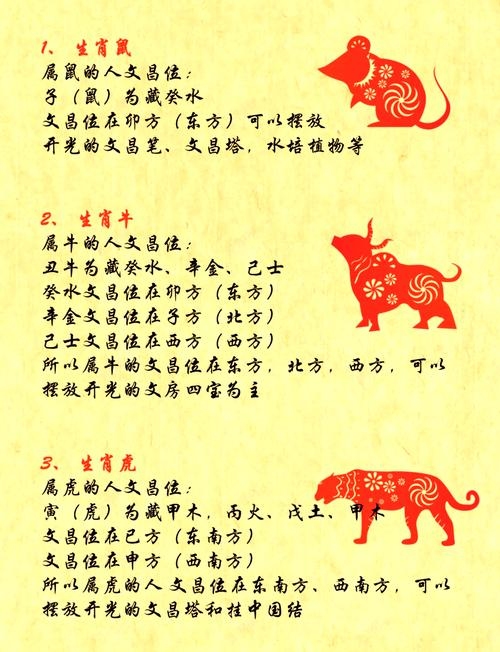 1、 生肖鼠
属鼠的人文昌位：
子（鼠）为藏癸水
文昌位在卯方（东方）可以摆放
开光的文昌笔、文昌塔，水培植物等
2、 生肖牛
属牛的人文昌位：
丑牛为藏癸水、辛金、己士
癸水文昌位在卯方（东方）
辛金文昌位在子方（北方）
己士文昌位在西方（西方）
所以属牛的文昌位在东方，北方，西方，可以
摆放开光的文房四宝为主
3、 生肖虎
属虎的人文昌位：
寅（虎）为藏甲木，丙火、戊土、甲木
文昌位在巳方（东南方）
文昌位在申方（西南方）
所以属虎的人 文昌位在东南方、西南方，可以
摆放开光的文昌塔和挂中国结